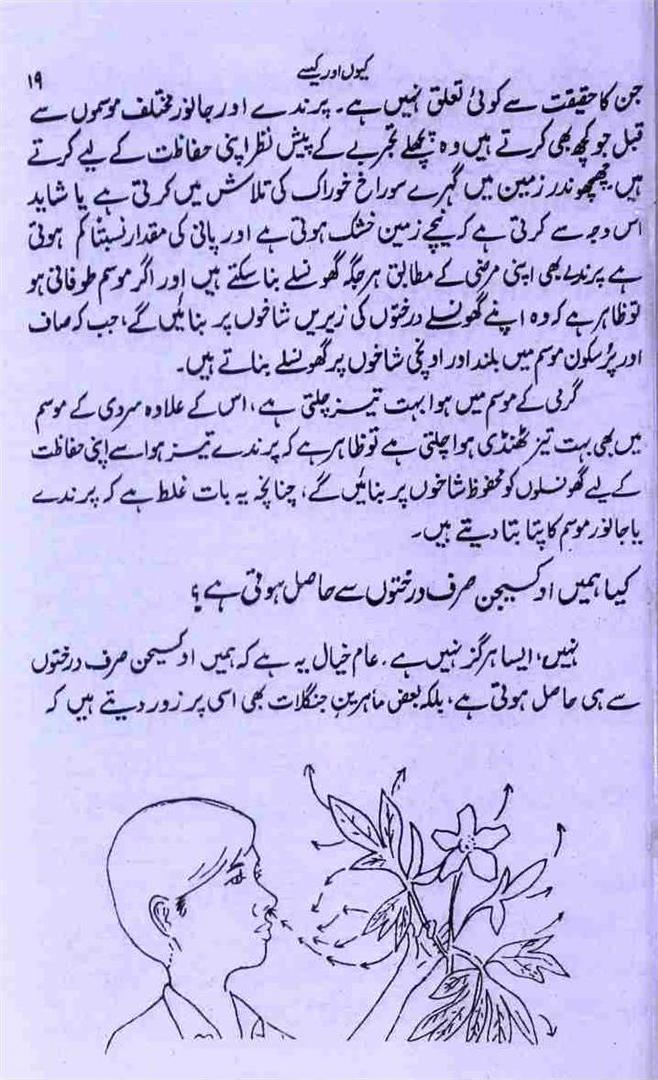 کیوں اور کیسے
۱۹
جن کا حقیقت سے کوئی تعلق نہیں ہے۔ پرندے اور جانور مختلف موسموں سے
قبل جو کچھ بھی کرتے ہیں وہ پچھلے تجربے کے پیش نظر اپنی حفاظت کے لیے کرتے
ہیں چھچھوندر زمین میں گہرے سوراخ خوراک کی تلاش میں کرتی ہے یا شاید
اس وجہ سے کرتی ہے کہ نیچے زمین خشک ہوتی ہے اور پانی کی مقدار نسبتاً کم ہوتی
ہے پرندے بھی اپنی مرضی کے مطابق ہر جگہ گھونسلے بنا سکتے ہیں اور اگر موسم طوفانی ہو
تو ظاہر ہے کہ وہ اپنے گھونسلے درختوں کی زیریں شاخوں پر بنائیں گے، جب کہ صاف
اور پُرسکون موسم میں بلند اور اونچی شاخوں پر گھونسلے بناتے ہیں۔
گرمی کے موسم میں ہوا بہت تیز چلتی ہے، اس کے علاوہ سردی کے موسم
میں بھی بہت تیز ٹھنڈی ہوا چلتی ہے تو ظاہر ہے کہ پرندے تیز ہوا سے اپنی حفاظت
کے لیے گھونسلوں کو محفوظ شاخوں پر بنائیں گے، چنانچہ یہ بات غلط ہے کہ پرندے
یا جانور موسم کا پتا بتا دیتے ہیں۔
کیا ہمیں اوکسیجن صرف درختوں سے حاصل ہوتی ہے؟
نہیں، ایسا ہرگز نہیں ہے۔ عام خیال یہ ہے کہ ہمیں اوکسیجن صرف درختوں
سے ہی حاصل ہوتی ہے، بلکہ بعض ماہرین جنگلات بھی اسی پر زور دیتے ہیں کہ